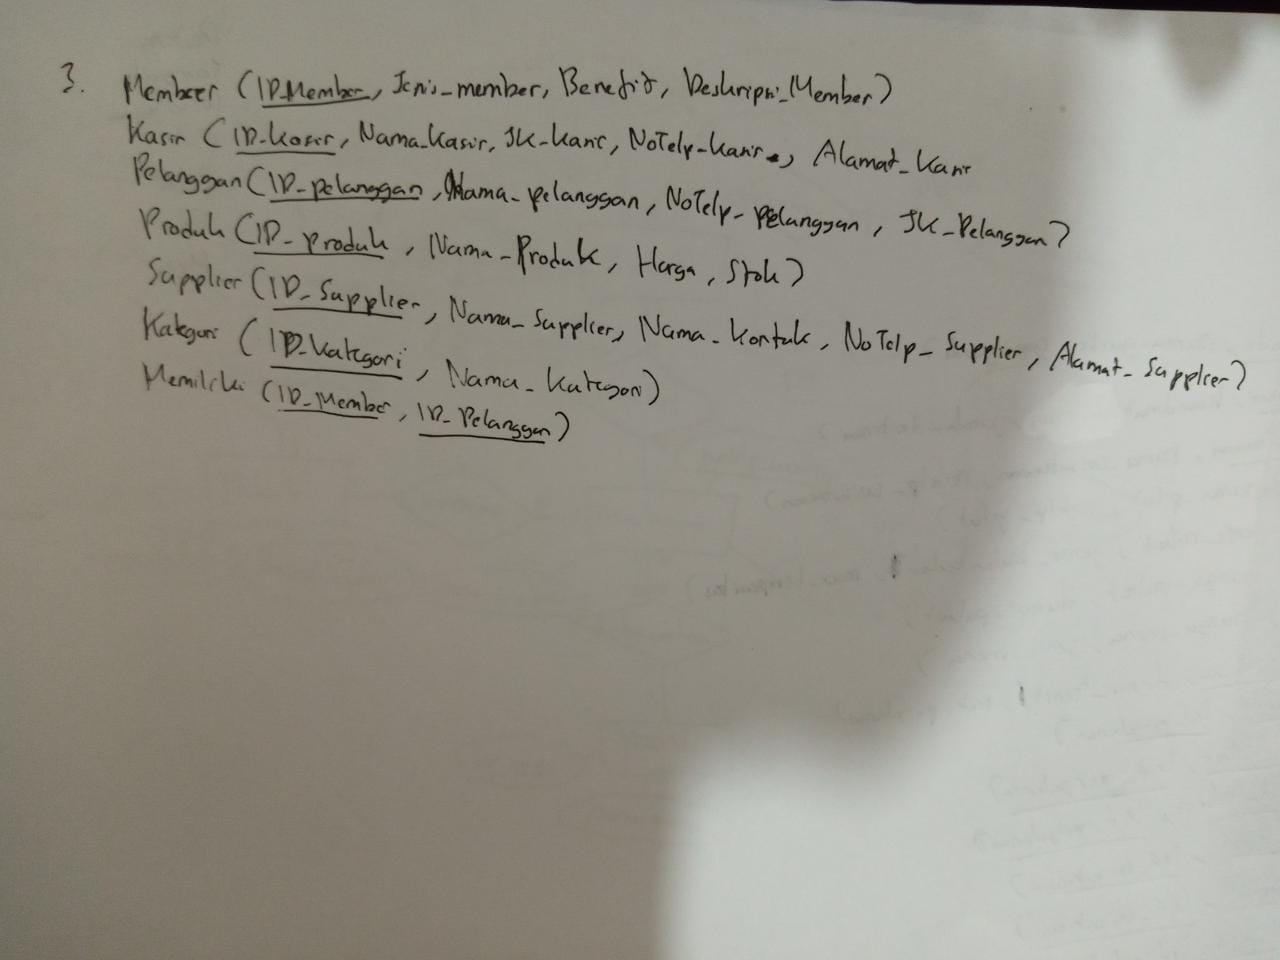 3. Member (ID_Member, Jenis_member, Benefit, Deskripsi_Member)
Kasir (ID_Kasir, Nama_Kasir, JK_Kasir, NoTelp_Kasir, Alamat_Kasir
Pelanggan (ID_pelanggan, Nama_pelanggan, NoTelp_pelanggan, JK_Pelanggan)
Produk (ID_produk, Nama_Produk, Harga, Stok)
Supplier (ID_Supplier, Nama_Supplier, Nama_Kontak, NoTelp_Supplier, Alamat_Supplier)
Kategori (ID_Kategori, Nama_Kategori)
Memiliki (ID_Member, ID_Pelanggan)